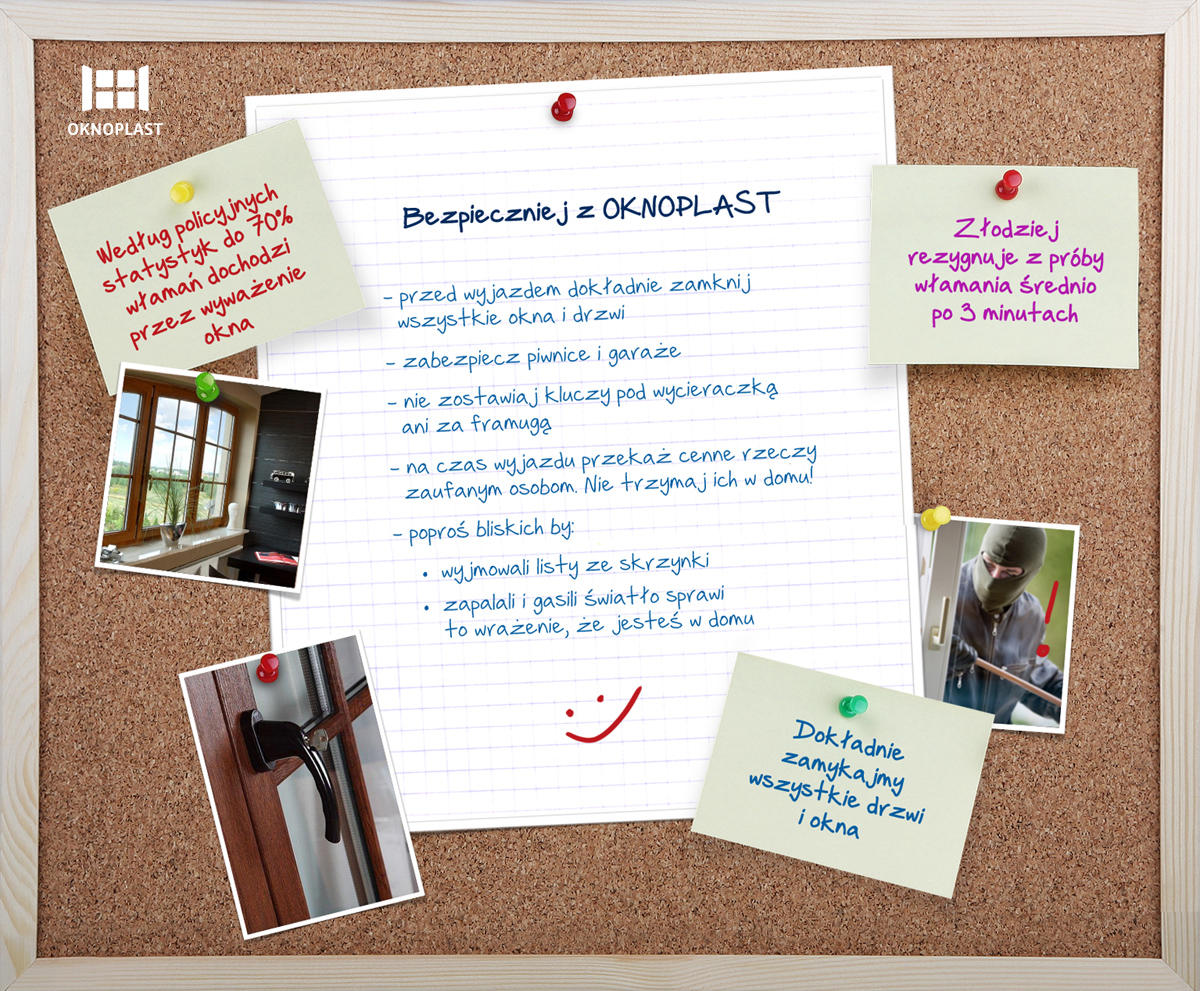 OKNOPLAST
Według policyjnych
statystyk do 70%
włamań dochodzi
przez wyważenie
okna
Bezpieczniej z OKNOPLAST
- przed wyjazdem dokładnie zamknij
wszystkie okna i drzwi
- zabezpiecz piwnice i garaże
- nie zostawiaj kluczy pod wycieraczką
ani za framugą
- na czas wyjazdu przekaż cenne rzeczy
zaufanym osobom. Nie trzymaj ich w domu!
- poproś bliskich by:
• wyjmowali listy ze skrzynki
• zapalali i gasili światło sprawi
to wrażenie, że jesteś w domu
Złodziej
rezygnuje z próby
włamania średnio
po 3 minutach
!
Dokładnie
zamykajmy
wszystkie drzwi
i okna